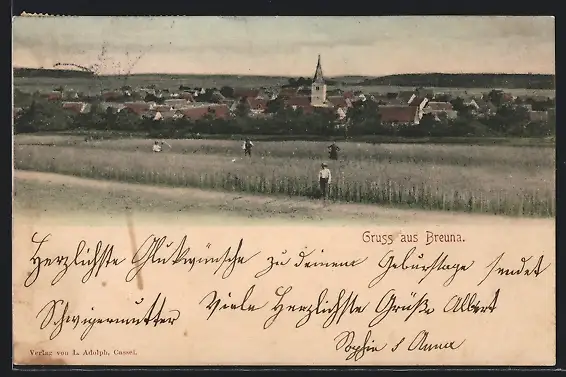 Gruss aus Breuna.
Herzlichste Glukwünsche zu deinem Geburstage sendet
Schwigermutter Viele Herzlichste Grüße Albert
Sophie s Anna
Verlag von L. Adolph, Cassel.